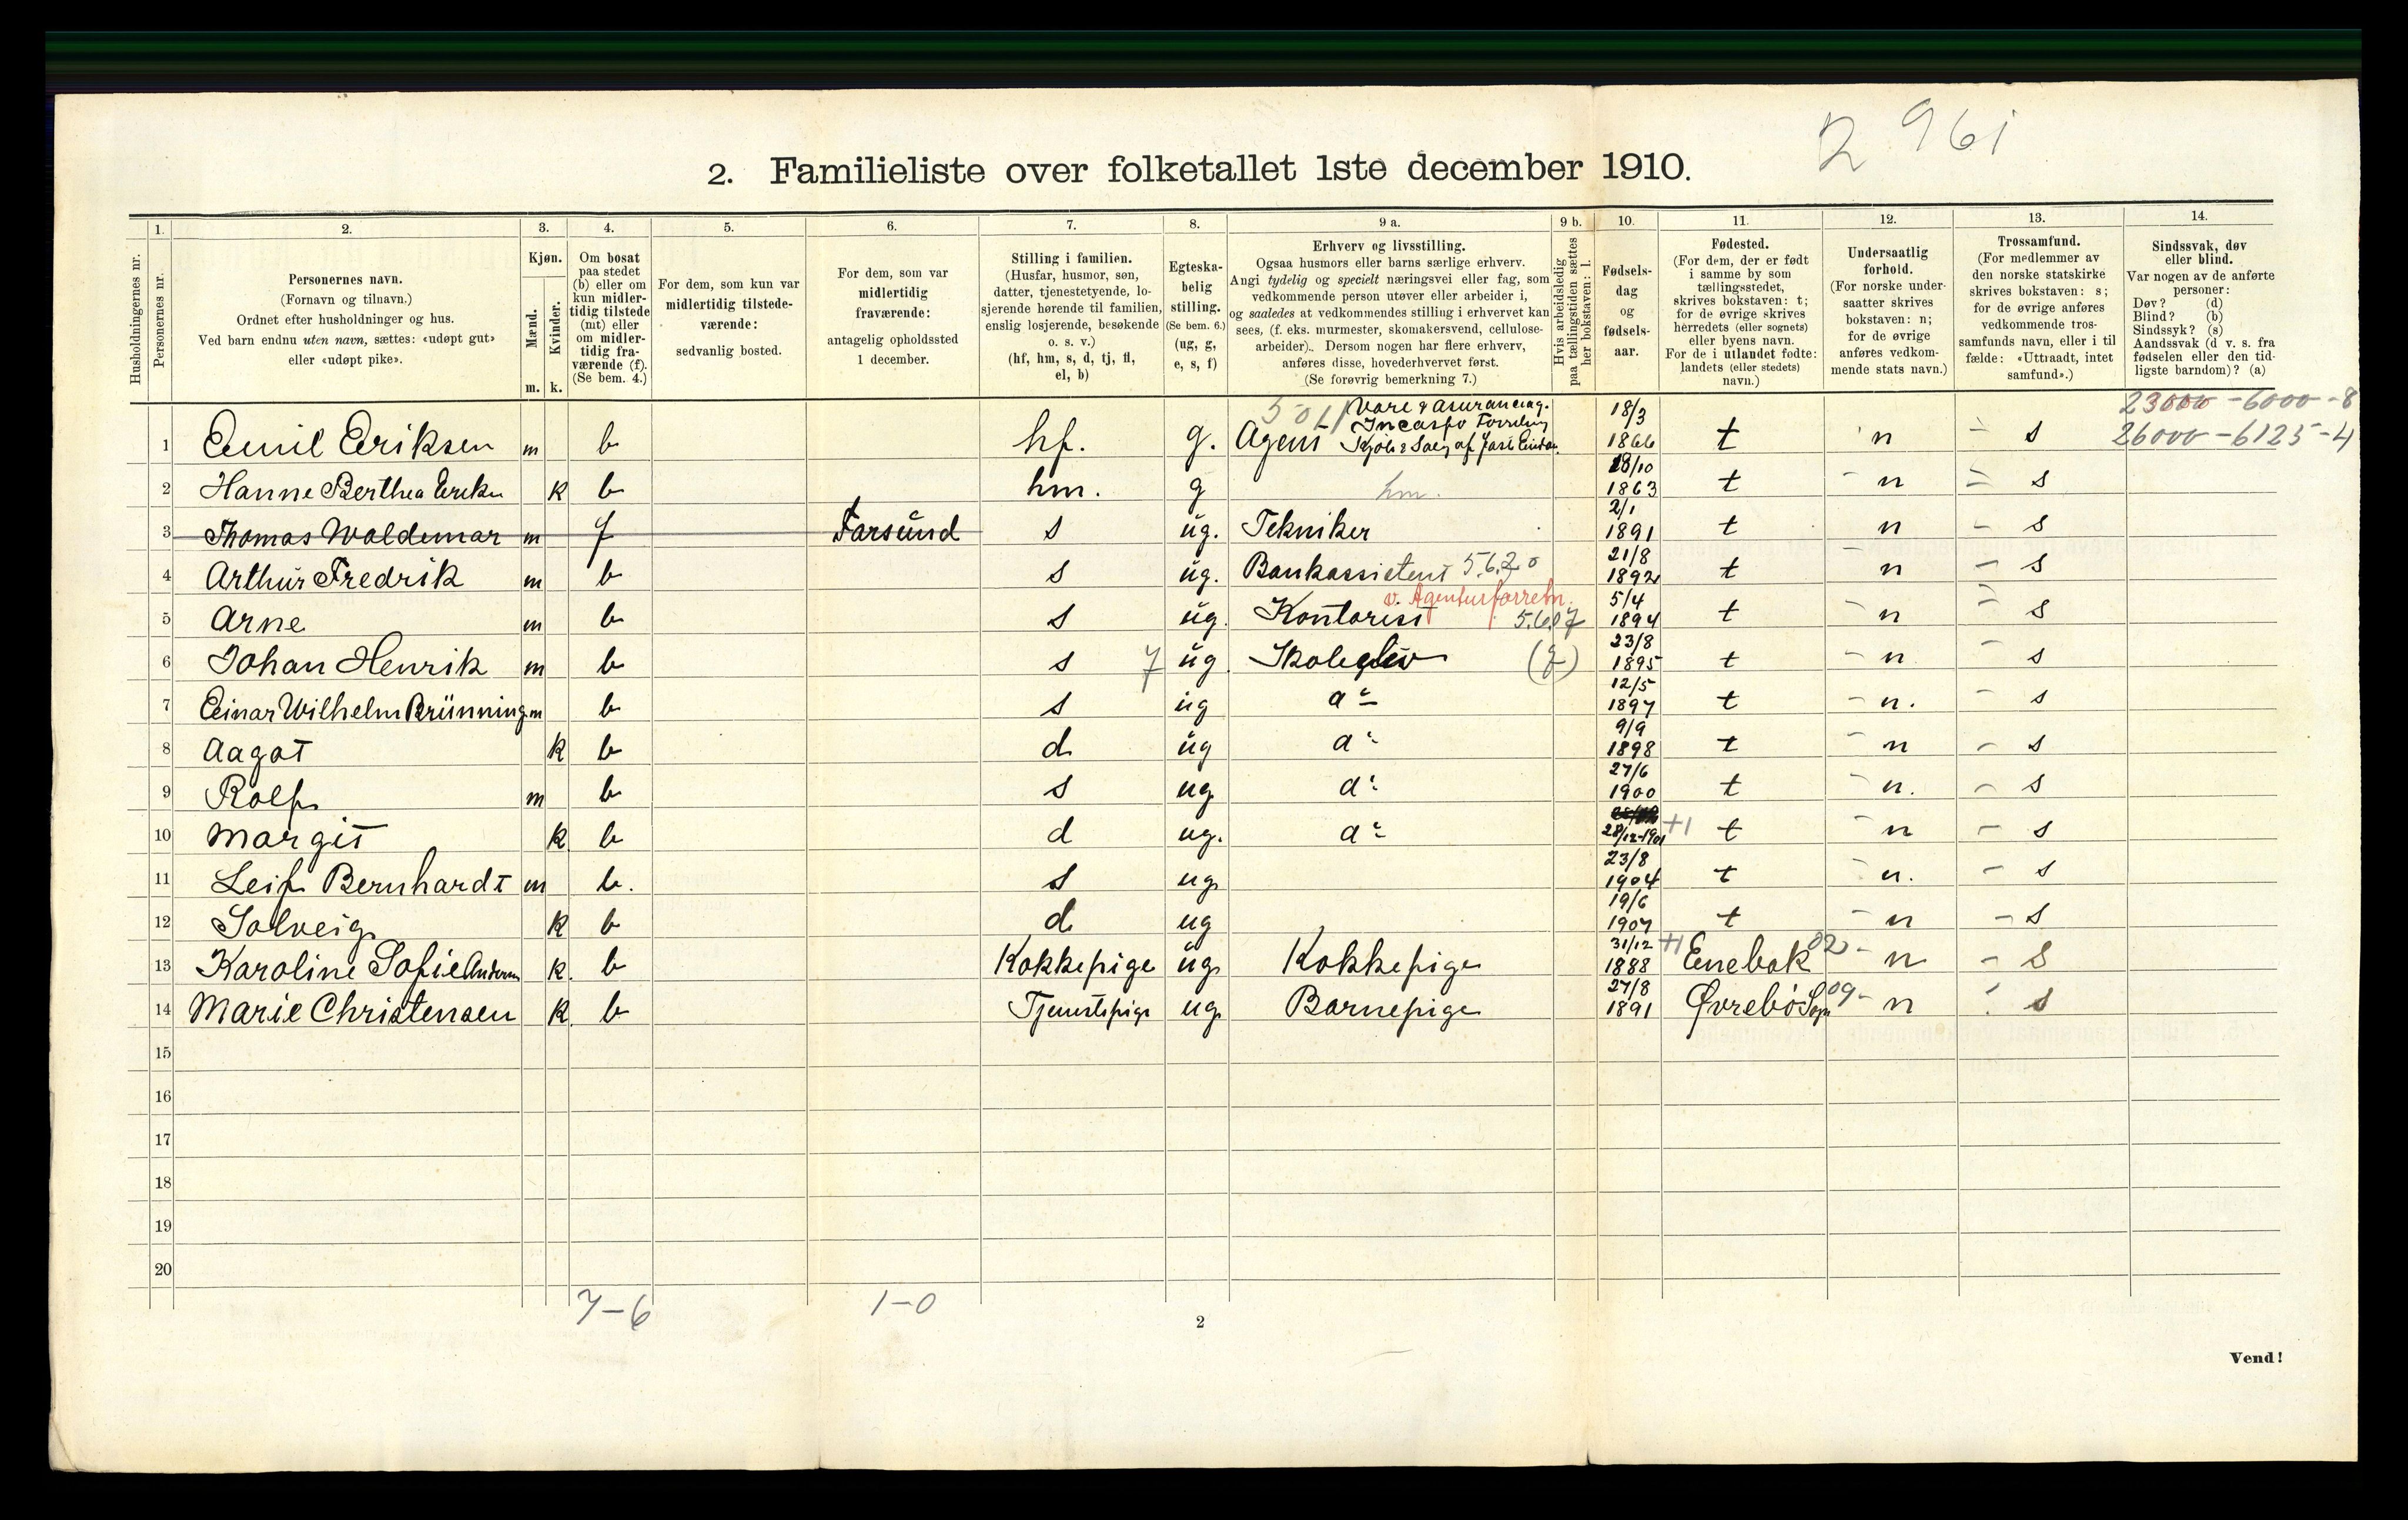 2 961
2. Familieliste over folketallet 1ste december 1910.
Husholdningernes nr.
1. Personernes nr.
2. Personernes navn. (Fornavn og tilnavn.) Ordnet efter husholdninger og hus. Ved barn endnu uten navn, sættes: «udøpt gut» eller «udøpt pike».
3. Kjøn. Mænd. m. Kvinder. k.
4. Om bosat paa stedet (b) eller om kun midlertidig tilstede (mt) eller om midlertidig fraværende (f). (Se bem. 4.)
5. For dem, som kun var midlertidig tilstedeværende: sedvanlig bosted.
6. For dem, som var midlertidig fraværende: antagelig opholdssted 1 december.
7. Stilling i familien. (Husfar, husmor, søn, datter, tjenestetyende, losjerende hørende til familien, enslig losjerende, besøkende o. s. v.) (hf, hm, s, d, tj, fl, el, b)
8. Egteskabelig stilling. (Se bem. 6.) (ug, g, e, s, f)
9 a. Erhverv og livsstilling. Ogsaa husmors eller barns særlige erhverv. Angi tydelig og specielt næringsvei eller fag, som vedkommende person utøver eller arbeider i, og saaledes at vedkommendes stilling i erhvervet kan sees, (f. eks. murmester, skomakersvend, cellulosearbeider). Dersom nogen har flere erhverv, anføres disse, hovederhvervet først. (Se forøvrig bemerkning 7.)
9 b. Hvis arbeidsledig paa tællingstiden sættes her bokstaven: l.
10. Fødselsdag og fødselsaar.
11. Fødested. (For dem, der er født i samme by som tællingsstedet, skrives bokstaven: t; for de øvrige skrives herredets (eller sognets) eller byens navn. For de i utlandet fødte: landets (eller stedets) navn.)
12. Undersaatlig forhold. (For norske undersaatter skrives bokstaven: n; for de øvrige anføres vedkommende stats navn.)
13. Trossamfund. (For medlemmer av den norske statskirke skrives bokstaven: s; for de øvrige anføres vedkommende trossamfunds navn, eller i tilfælde: «Uttraadt, intet samfund».)
14. Sindssvak, døv eller blind. Var nogen av de anførte personer: Døv? (d) Blind? (b) Sindssyk? (s) Aandssvak (d v. s. fra fødselen eller den tidligste barndom)? (a)
23000 - 6000 - 8
26000 - 6125 - 4
1 Emil Eriksen m b hf. g. Agent 18/3 1866 t n s
2 Hanne Berthea k b hm. g hm. 18/10 1863 t n s
3 Thomas Waldemar m f Farsund s ug. Tekniker 2/1 1891 t n s
4 Arthur Fredrik m b s ug. Bankassistent 5.6.20 21/8 1892 t n s
v. Agenturforretn.
5 Arne m b s ug. Kontorist 5.6.07 5/4 1894 t n s
6 Johan Henrik m b s 7 ug Skoleelev 23/8 1895 t n s
7 Einar Wilhelm Brünning m b s ug do 12/5 1897 t n. s
8 Aagot k b d ug do 9/9 1898 t n s
9 Rolf m b s ug do 27/6 1900 t n. s
10 Margit k b d ug. do 28/12-1901 +1 t n s
11 Leif Bernhardt m b. s ug 23/8 1904 t n. s
12 Solveig k b d ug 19/6 1907 t n s
13 Karoline Sofie k. b Kokkepige ug Kokkepige 31/12 1888 +1 Enebak 02 n s
14 Marie Christensen k. b Tjenestepige ug Barnepige 27/8 1891 Øvrebø Sogn 09 n s
15
16
17
18
19
20
7-6 1-0
2
Vend!